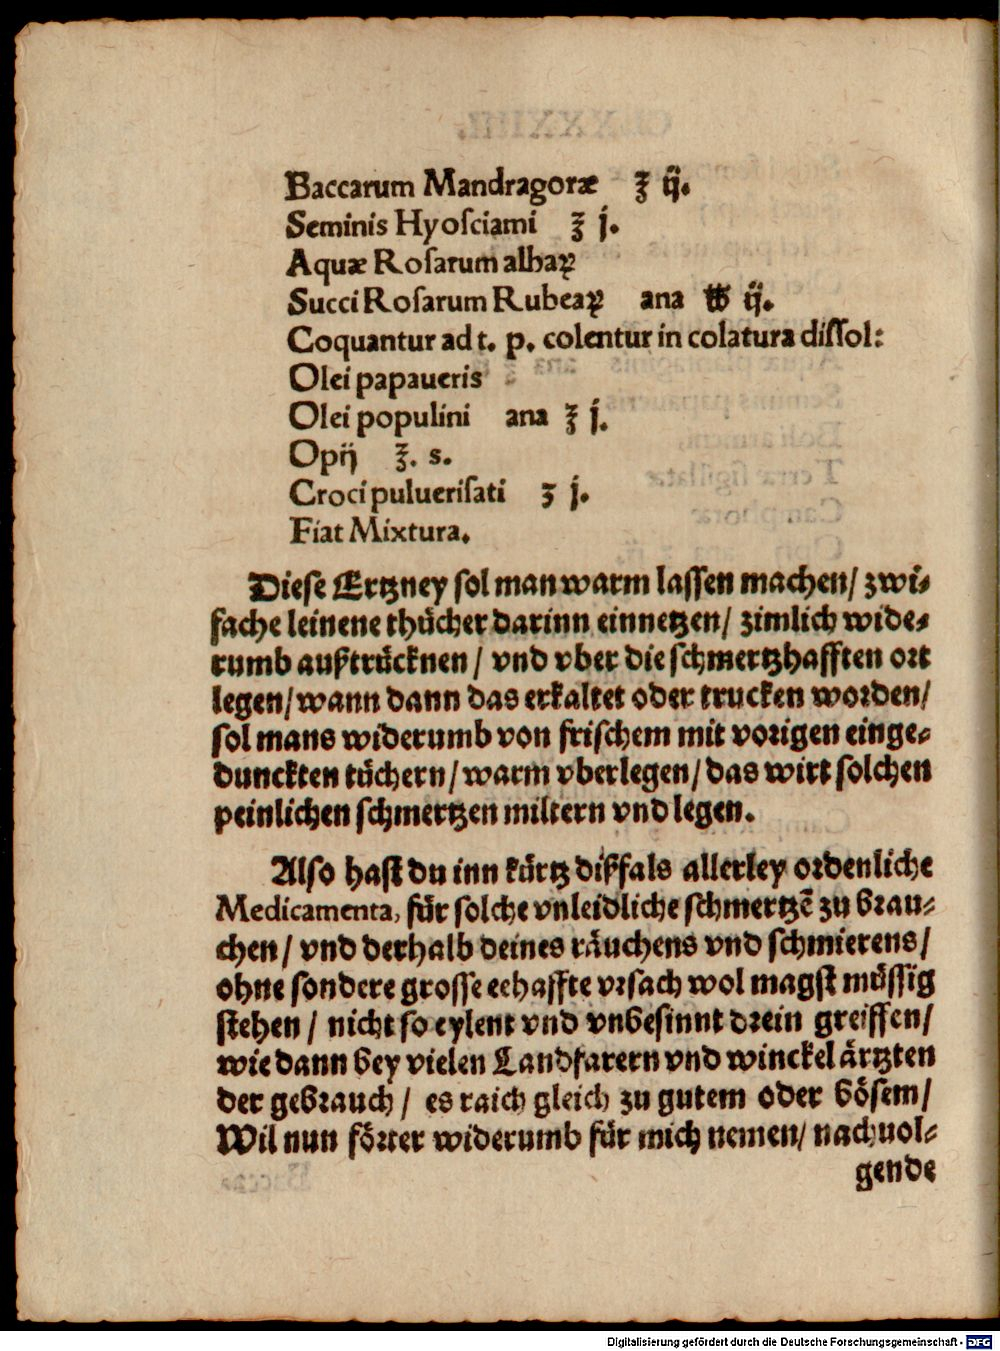 Baccarum Mandragoræ ℥ ij.
Seminis Hyoſciami ℥ j.
Aquæ Roſarum albaꝝ
Succi Roſarum Rubeaꝝ ana ℔ ij.
Coquantur ad t. p. colentur in colatura diſſol:
Olei papaueris
Olei populini ana ℥ j.
Opij ℥. s.
Croci pulueriſati ʒ j.
Fiat Mixtura.
Dieſe Ertzney ſol man warm laſſen machen/ zwi⸗
fache leinene thücher darinn einnetzen/ zimlich wide⸗
rumb außtrücknen/ vnd vber die ſchmertzhafften ort
legen/ wann dann das erkaltet oder trucken worden/
ſol mans widerumb von friſchem mit vorigen einge⸗
dunckten tüchern/ warm vberlegen/ das wirt ſolchen
peinlichen ſchmertzen miltern vnd legen.
Alſo haſt du inn kürtz dißfals allerley ordenliche
Medicamenta, für ſolche vnleidliche ſchmertzē zu brau⸗
chen/ vnd derhalb deines räuchens vnd ſchmierens/
ohne ſondere groſſe eehaffte vrſach wol magſt müſſig
ſtehen/ nicht ſo eylent vnd vnbeſinnt drein greiffen/
wie dann bey vielen Landfarern vnd winckel ärtzten
der gebrauch/ es raich gleich zu gutem oder böſem/
Wil nun förter widerumb für mich nemen/ nachuol⸗
gende
Digitalisierung gefördert durch die Deutsche Forschungsgemeinschaft - DFG